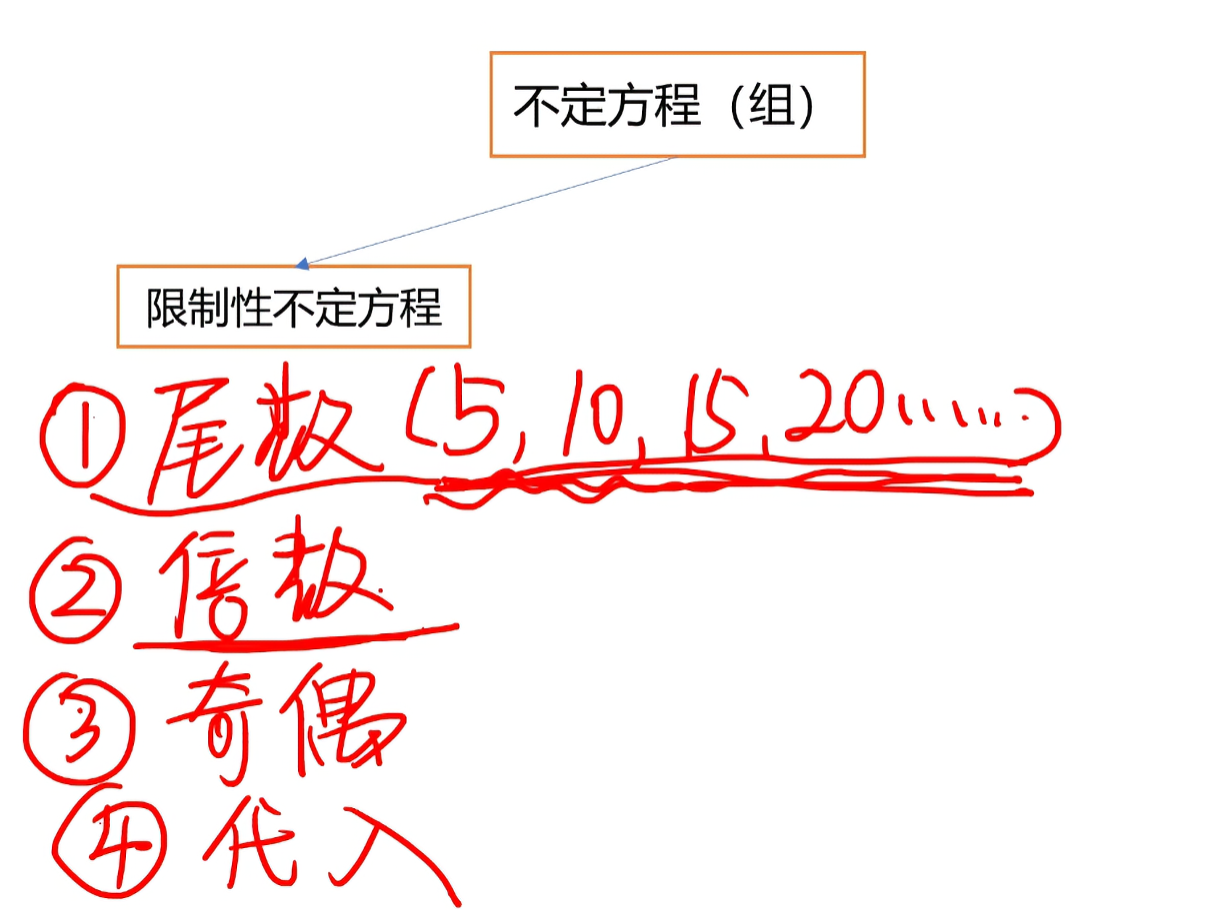 不定方程（组）
限制性不定方程
① 尾数 (5, 10, 15, 20……)
② 倍数
③ 奇偶
④ 代入